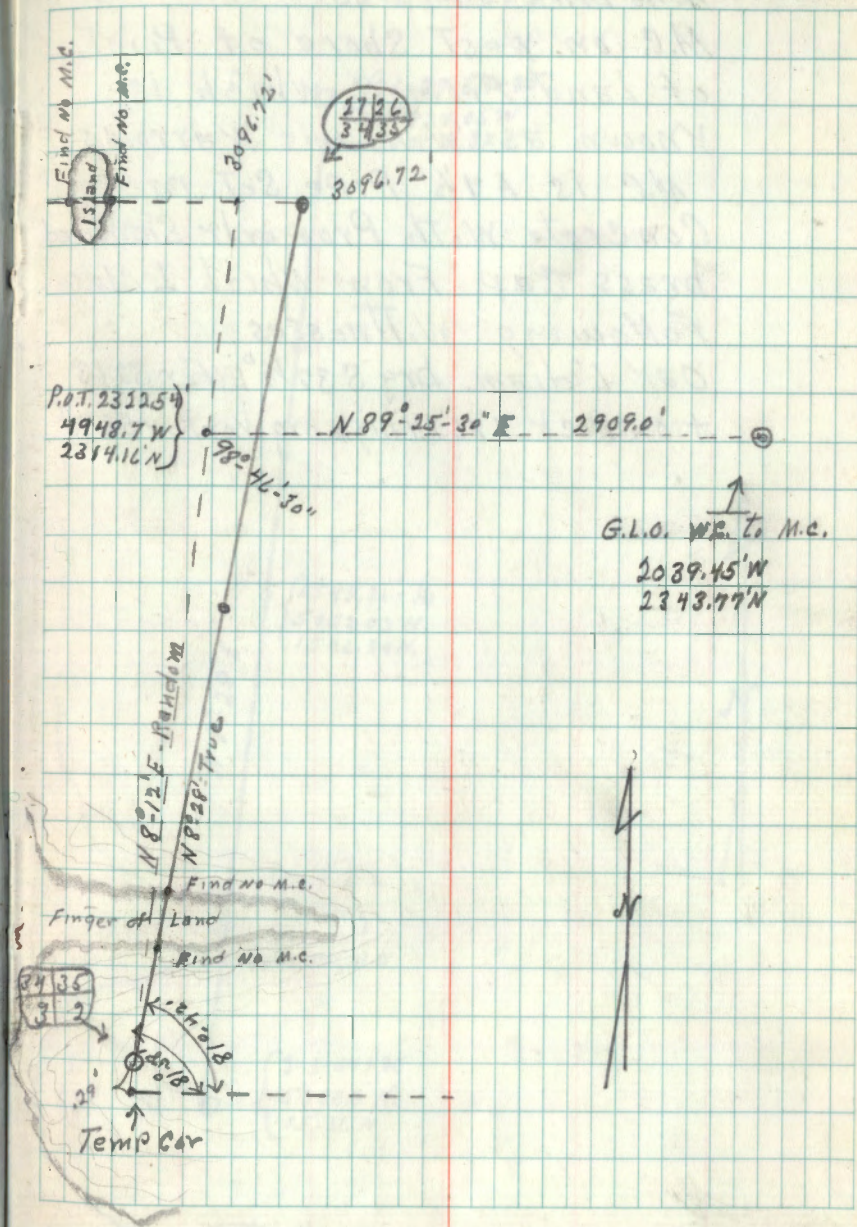 Find No M.C.
Island
Find No M.C.
3096.72'
27 26
34 35
3096.72'
P.O.T. 2312.54'
4948.7 W
2314.16 N
N 89°-25'-30" E 2909.0'
98°-46'-30"
G.L.O. W.C. to M.C.
2039.45'W
2343.77'N
N 8°-12' E - Random
N 8°-28' - True
Find No M.C.
Finger of Land
Find No M.C.
N
34 35
3 2
81°-42'
.29'
Temp Cor